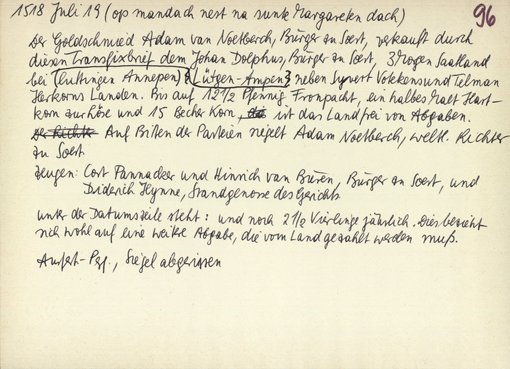 1518 Juli 19 (op mandach nest na sunte Margareten dach)
96
Der Goldschmied Adam van Noetberch, Bürger zu Soest, verkauft durch
diesen Transfixbrief dem Johan Dolphus, Bürger zu Soest, 3 Morgen Saatland
bei Luttingen Annepen) {(Lütgen-Ampen} neben Syvert Volckens und Telman
Herkorns Landen. Bis auf 12 1/2 Pfennig Gronpacht, ein halbes Malt Hart-
korn zur Höse und 15 Becher Korn, ist das Land frei von Abgaben.
Der Richter Auf Bitten der Parteien siegelt Adam Noetberch, weltl. Richter
zu Soest.
Zeugen: Cort Pannacker und Hinrich van Büren, Bürger zu Soest, und
Diderich Heynne, Standgenosse des Gerichts
unter der Datumszeile steht: und noch 2 1/2 Vierlinge jäürlich. Dies bezieht
sich wohl auf eine weitere Abgabe, die vom Land gezahlt werden muß.
Ausfert.-Pgt., Siegel abgerissen